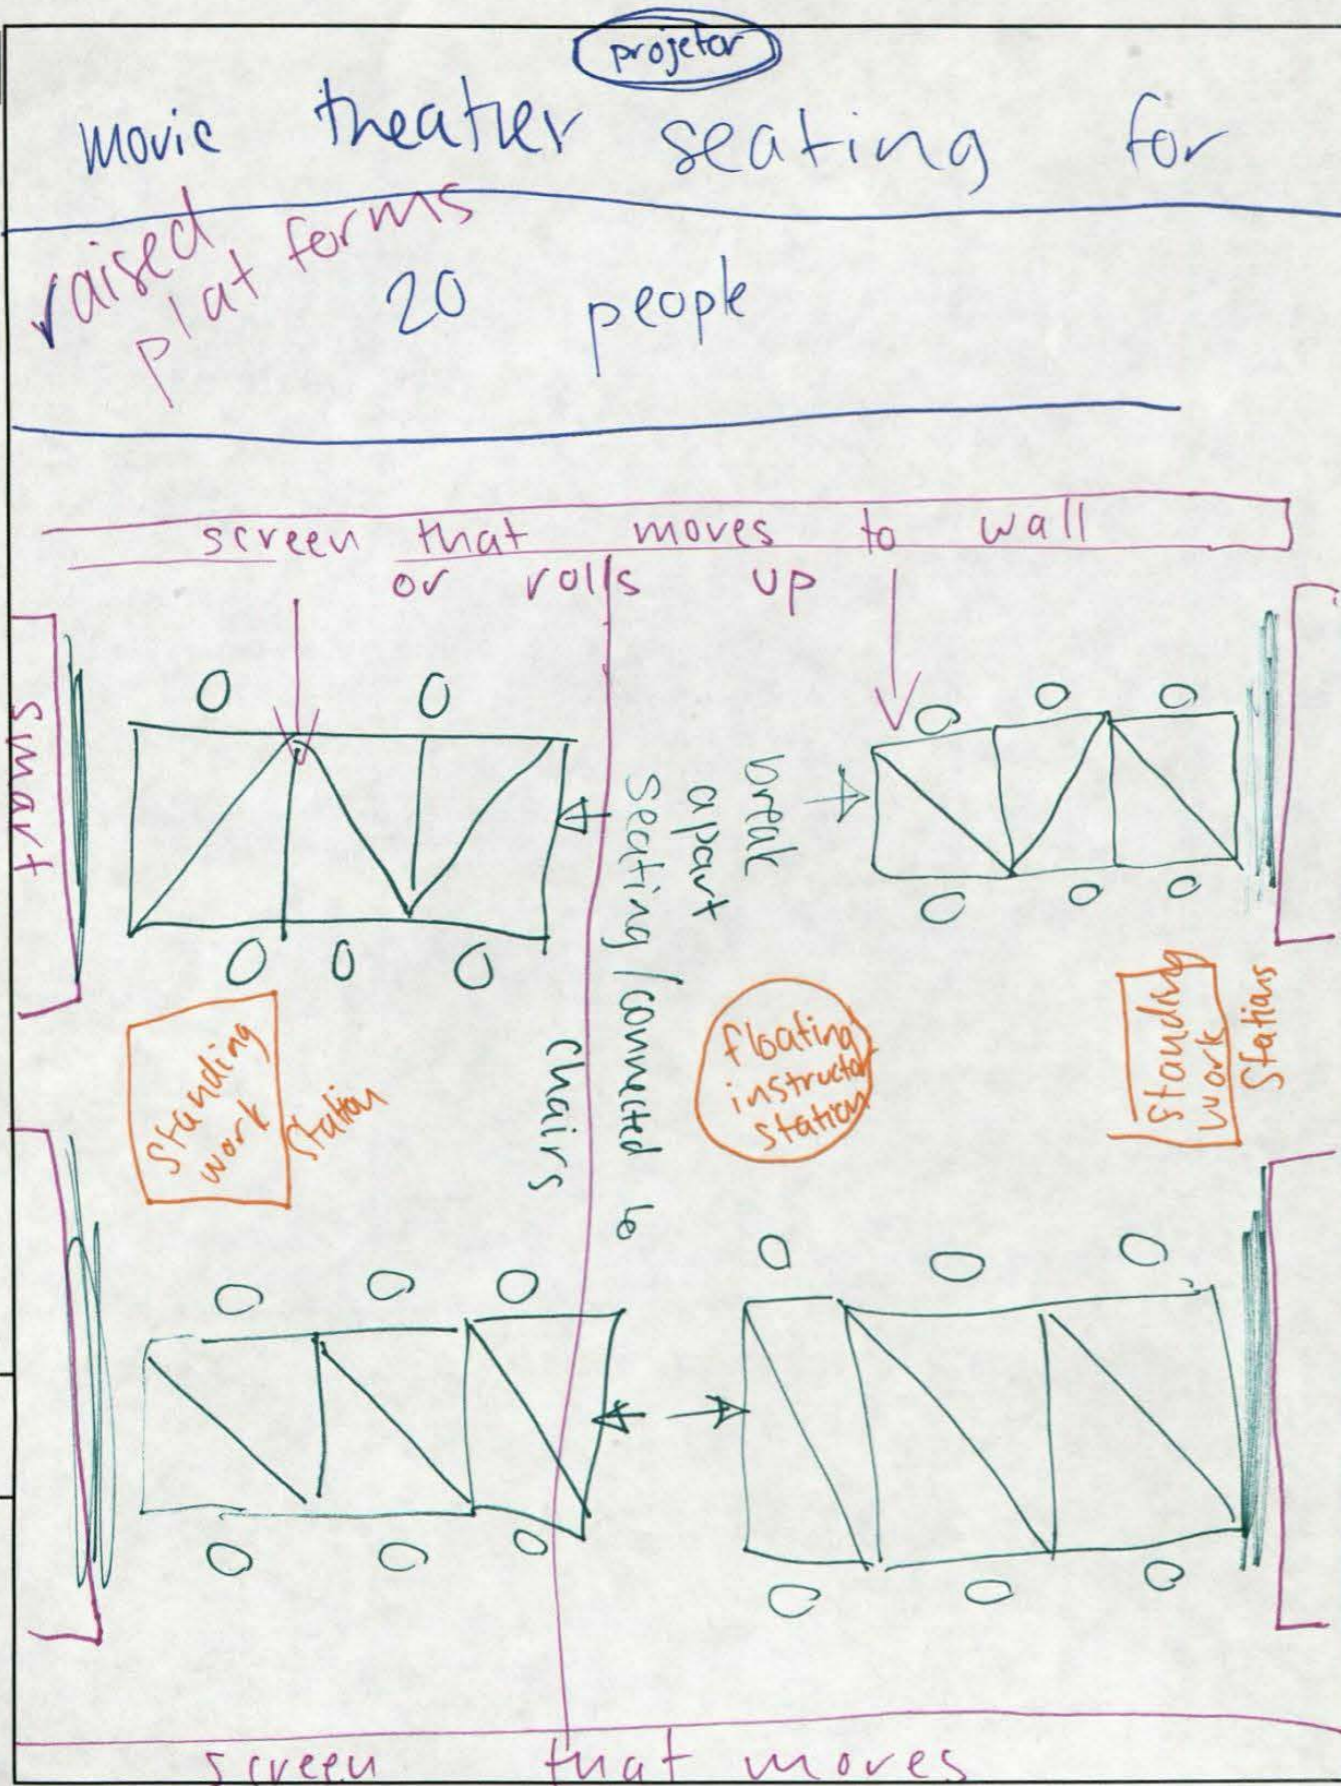 projetor
movie theatier seating for
raised
plat forms
20 people
screen that moves to wall
or rolls up
smart
break
apart
seating/connected to
chairs
floating
instructor
station
Standing
work
Station
Standing
work
Stations
screen that moves